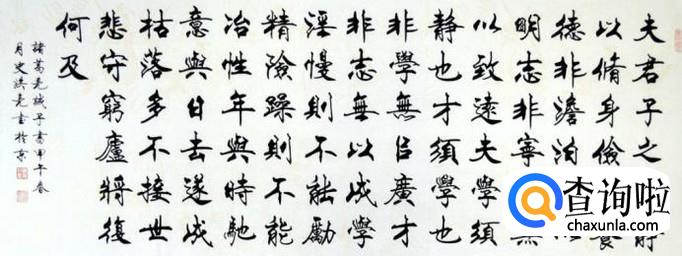 夫君子之靜
以脩身儉養
德非澹泊
明志非寧無
以致遠夫學須
靜也才須學也
非學無以廣才
非志無以成學
淫慢則不能勵
精險躁則不能
冶性年與時馳
意與日去遂成
枯落多不接世
悲守窮廬將復
何及
諸葛亮誡子書甲午春
月史洪亮書於京
查询啦
chaxunla.com